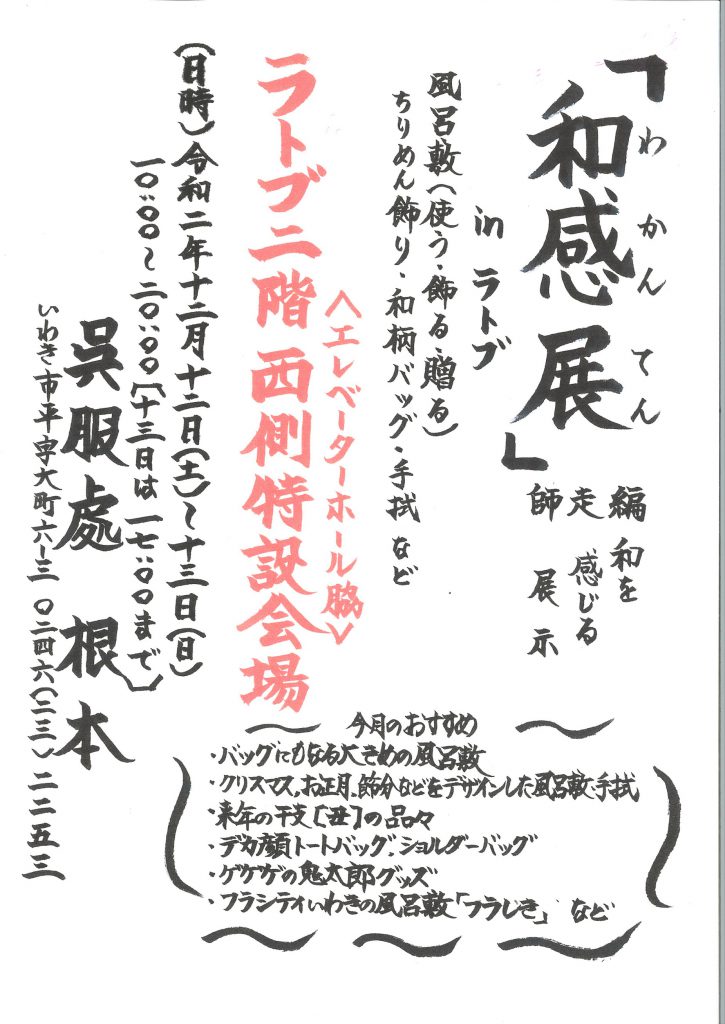 「和感展」
わかんてん
in ラトブ
和を感じる展示
師走編
風呂敷(使う・飾る・贈る)
ちりめん飾り・和柄バッグ・手拭など
<エレベーターホール脇>
ラトブ二階 西側特設会場
(日時)令和二年十二月十二日(土)〜十三日(日)
一〇:〇〇〜二〇:〇〇[十三日は一七:〇〇まで]
呉服處 根本
いわき市平字大町六-三 〇二四六(二三)二二五三
〜 今月のおすすめ 〜
・バッグにもなる大きめの風呂敷
・クリスマス、お正月、節分などをデザインした風呂敷、手拭
・来年の干支[丑]の品々
・デカ顔トートバッグ、ショルダーバッグ
・ゲゲゲの鬼太郎グッズ
・フラシティいわきの風呂敷「フラしき」 など